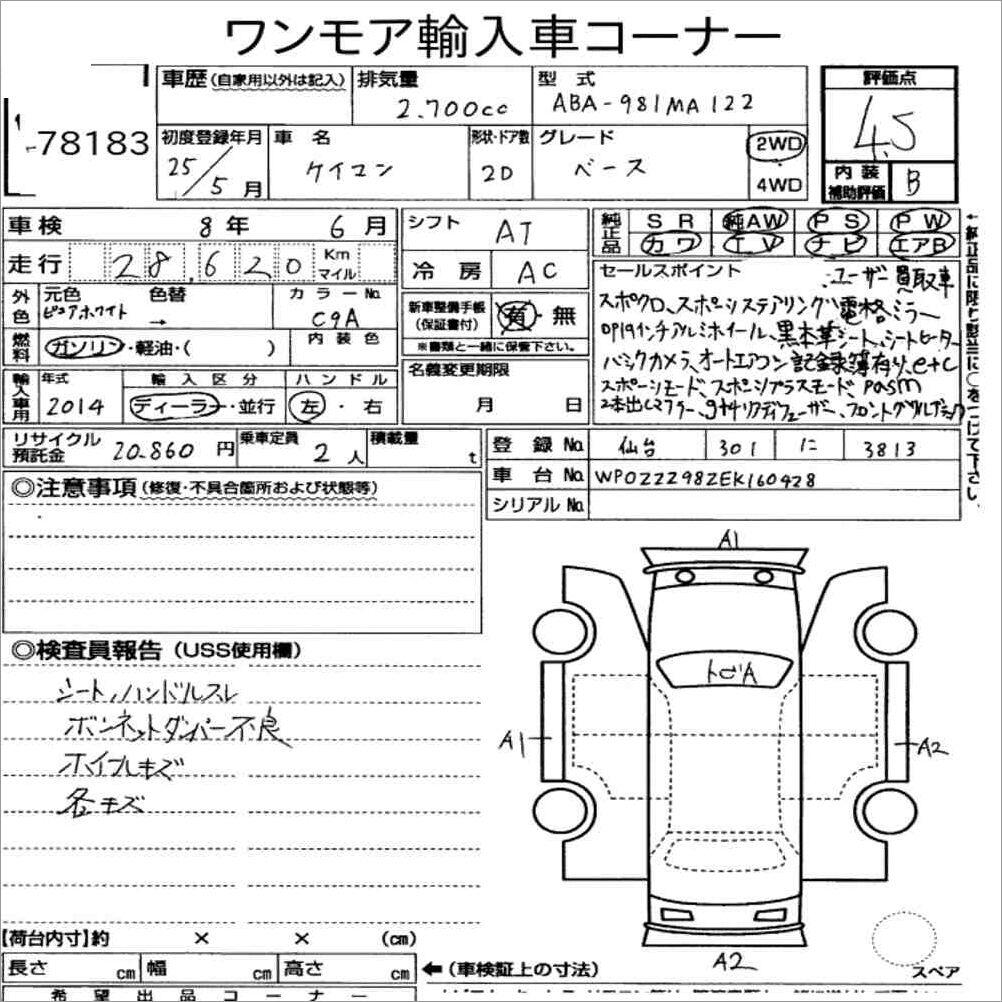 ワンモア輸入車コーナー
78183
車歴(自家用以外は記入)
排気量
2.700cc
型式
ABA-981MA122
評価点
4.5
初度登録年月
25/5月
車名
ケイマン
形状・ドア数
2D
グレード
ベース
2WD
4WD
内装補助評価
B
車検 8年 6月
シフト
AT
純正品
SR 純AW PS PW
カワ TV ナビ エアB
走行 28.620 Km マイル
冷房
AC
セールスポイント
ユーザー買取車
スポクロ、スポーツステアリング、電格ミラー
OP19インチアルミホイール、黒本革シート、シートヒーター
バックカメラ、オートエアコン 記録簿有り、etc
スポーツモード、スポーツプラスモード、PASM
外色
元色 色替
ピュアホワイト →
カラーNo.
C9A
新車整備手帳(保証書付)
有・無
※書類と一緒に保管下さい。
燃料
ガソリン・軽油・( )
内装色
名義変更期限
月 日
輸入車用
年式
2014
輸入区分
ディーラー・並行
ハンドル
左・右
リサイクル預託金
20.860円
乗車定員
2人
積載量
t
登録No.
仙台 301 に 3813
車台No.
WP0ZZZ98ZEK160428
シリアルNo.
◎注意事項(修復・不具合箇所および状態等)
◎検査員報告(USS使用欄)
シート、ハンドルスレ
ボンネットダンパー不良
ホイールキズ
各キズ
A1
トビA
A1
A2
A2
スペア
【荷台内寸】約 × × (cm)
長さ cm 幅 cm 高さ cm
←(車検証上の寸法)
希望出品コーナー